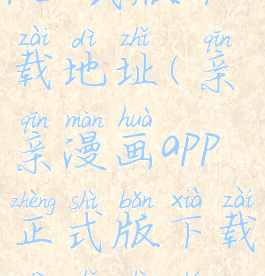 zài dì zhǐ qīn
载地址(亲
qīn màn huà
亲漫画app
zhèng shì bǎn xià zài
正式版下载